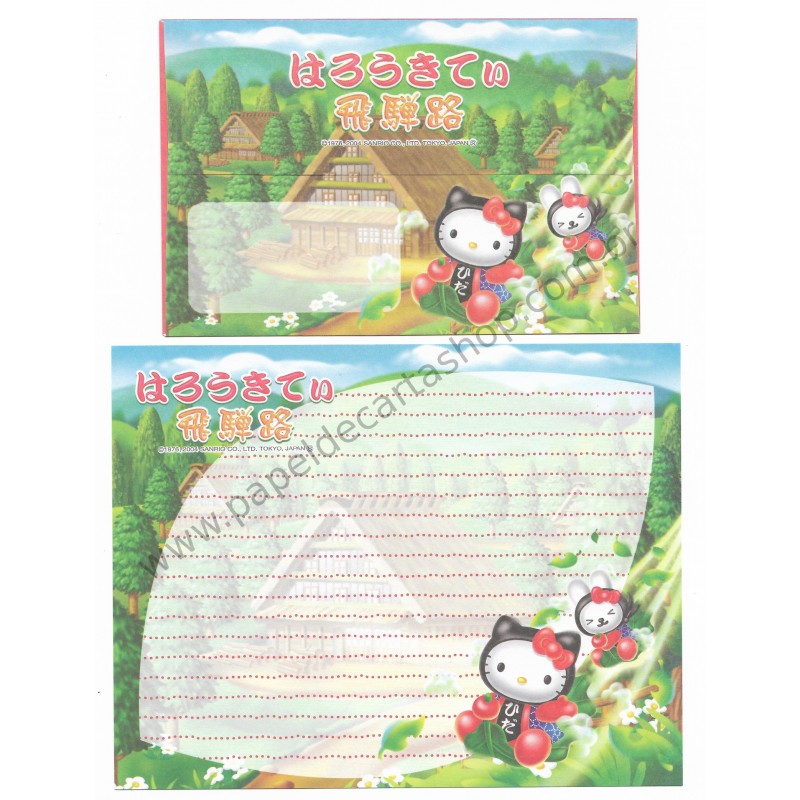 はろうきてぃ
飛騨路
©1976, 2004 SANRIO CO., LTD. TOKYO, JAPAN Ⓢ
ひだ
はろうきてぃ
飛騨路
©1976, 2004 SANRIO CO., LTD. TOKYO, JAPAN Ⓢ
ひだ
www.papeldecartashop.com.br